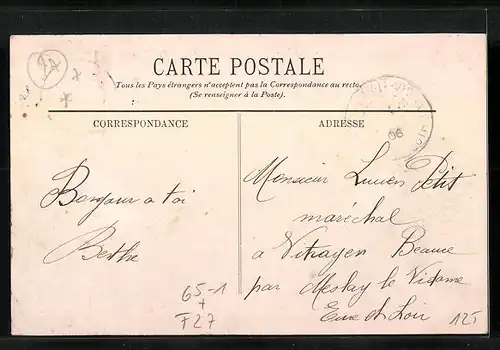 CARTE POSTALE
Tous les Pays étrangers n'acceptent pas la Correspondance au recto.
(Se renseigner à la Poste).
CORRESPONDANCE
ADRESSE
Bonjour a toi
Berthe
Monsieur Lucien Petit
maréchal
a Vitrayen Beauce
par Meslay le Vidame
Eure et Loir
65-1
+
F27
12F
06